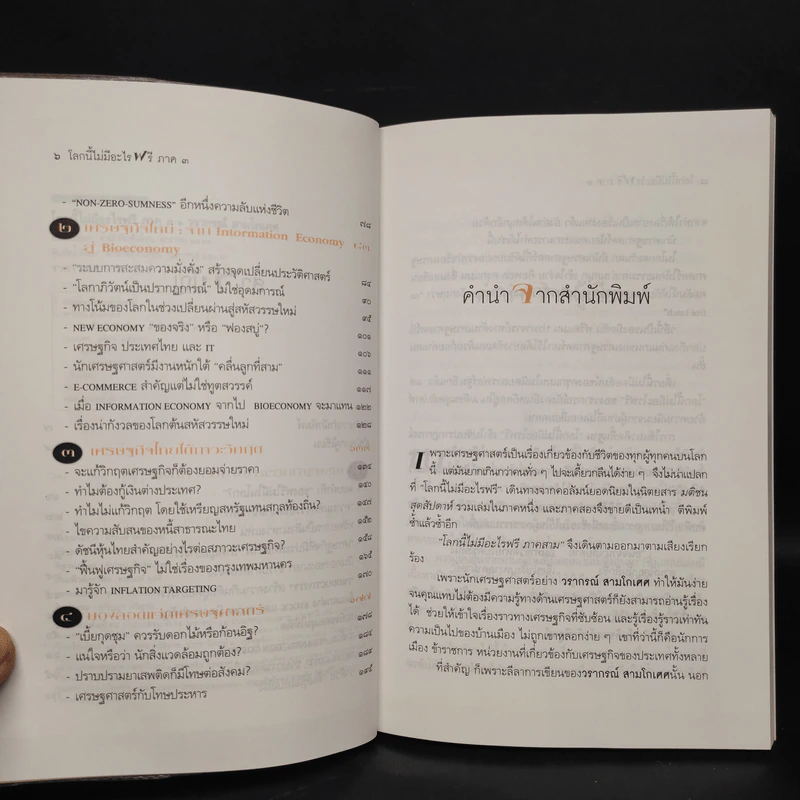 ๖ โลกนี้ไม่มีอะไรฟรี ภาค ๓
- "NON-ZERO-SUMNESS" อีกหนึ่งความลับแห่งชีวิต ๗๘
๒ เศรษฐกิจใหม่ : จาก Information Economy ๘๓
สู่ Bioeconomy
- "ระบบการสะสมความมั่งคั่ง" สร้างจุดเปลี่ยนประวัติศาสตร์ ๘๔
- "โลกาภิวัตน์เป็นปรากฏการณ์" ไม่ใช่อุดมการณ์ ๙๐
- ทางโน้มของโลกในช่วงเปลี่ยนผ่านสู่สหัสวรรษใหม่ ๙๕
- NEW ECONOMY "ของจริง" หรือ "ฟองสบู่"? ๑๐๑
- เศรษฐกิจ ประเทศไทย และ IT ๑๐๖
- นักเศรษฐศาสตร์มีงานหนักใต้ "คลื่นลูกที่สาม" ๑๑๑
- E-COMMERCE สำคัญแต่ไม่ใช่ทูตสวรรค์ ๑๑๗
- เมื่อ INFORMATION ECONOMY จากไป BIOECONOMY จะมาแทน ๑๒๒
- เรื่องน่ากังวลของโลกต้นสหัสวรรษใหม่ ๑๒๘
๓ เศรษฐกิจไทยใต้ภาวะวิกฤต
- จะแก้วิกฤตเศรษฐกิจก็ต้องยอมจ่ายราคา ๑๓๔
- ทำไมต้องกู้เงินต่างประเทศ? ๑๔๐
- ทำไมไม่แก้วิกฤต โดยใช้เหรียญสหรัฐแทนสกุลท้องถิ่น? ๑๔๗
- ไขความสับสนของหนี้สาธารณะไทย ๑๕๒
- ดัชนีหุ้นไทยสำคัญอย่างไรต่อสภาวะเศรษฐกิจ? ๑๕๘
- "ฟื้นฟูเศรษฐกิจ" ไม่ใช่เรื่องของกรุงเทพมหานคร ๑๖๕
- มารู้จัก INFLATION TARGETING ๑๗๐
๔ มองลอดแว่นเศรษฐศาสตร์ ๑๗๗
- "เบี้ยกุดชุม" ควรรับดอกไม้หรือก้อนอิฐ? ๑๗๘
- แน่ใจหรือว่า นักสิ่งแวดล้อมถูกต้อง? ๑๘๔
- ปราบปรามยาเสพติดก็มีโทษต่อสังคม? ๑๘๙
- เศรษฐศาสตร์กับโทษประหาร ๑๙๕
คำนำจากสำนักพิมพ์
เพราะเศรษฐศาสตร์เป็นเรื่องเกี่ยวข้องกับชีวิตของทุกผู้ทุกคนบนโลก
นี้ แต่มันยากเกินกว่าคนทั่ว ๆ ไปจะเคี้ยวกลืนได้ง่าย ๆ จึงไม่น่าแปลก
ที่ "โลกนี้ไม่มีอะไรฟรี" เดินทางจากคอลัมน์ยอดนิยมในนิตยสาร มติชน
สุดสัปดาห์ รวมเล่มในภาคหนึ่ง และภาคสองจึงขายดีเป็นเทน้ำ ตีพิมพ์
ซ้ำแล้วซ้ำอีก
"โลกนี้ไม่มีอะไรฟรี ภาคสาม" จึงเดินตามออกมาตามเสียงเรียก
ร้อง
เพราะนักเศรษฐศาสตร์อย่าง วรากรณ์ สามโกเศศ ทำให้มันง่าย
จนคุณแทบไม่ต้องมีความรู้ทางด้านเศรษฐศาสตร์ก็ยังสามารถอ่านรู้เรื่อง
ได้ ช่วยให้เข้าใจเรื่องราวทางเศรษฐกิจที่ซับซ้อน และรู้เรื่องรู้ราวเท่าทัน
ความเป็นไปของบ้านเมือง ไม่ถูกเขาหลอกง่าย ๆ เขาที่ว่านี้ก็คือนักการ
เมือง ข้าราชการ หน่วยงานที่เกี่ยวข้องกับเศรษฐกิจของประเทศทั้งหลาย
ที่สำคัญ ก็เพราะลีลาการเขียนของวรากรณ์ สามโกเศศนั้น นอก